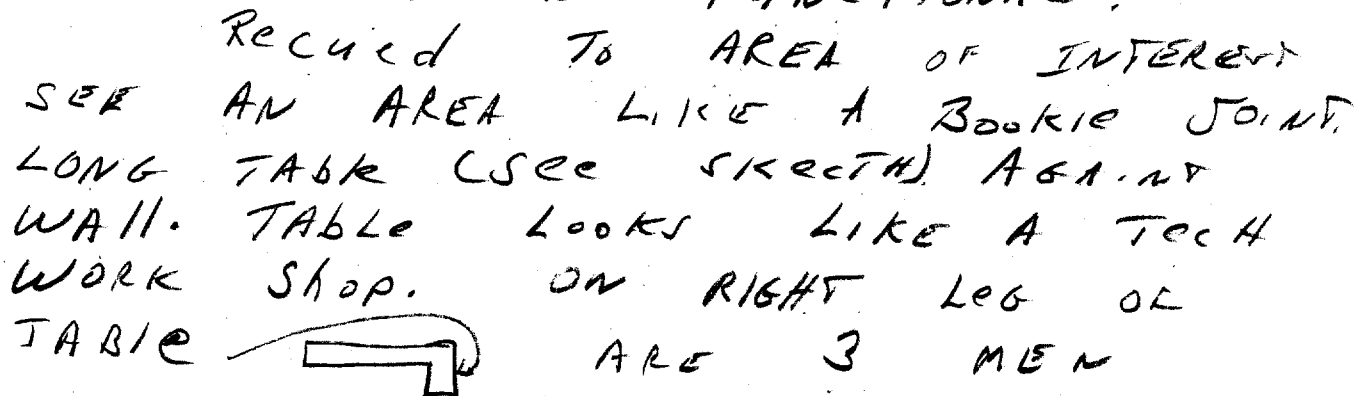 FUNCTIONAL.
Recued To AREA OF INTEREST
SEE AN AREA LIKE A BOOKIE JOINT.
LONG TABLE (SEE SKECTH) AGAINT
WALL. TABLE LOOKS LIKE A TECH
WORK Shop. ON RIGHT LEG OF
TABLE ARE 3 MEN